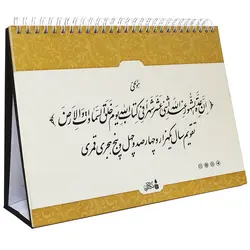 ﴿ إن عدة الشهور عند الله اثنى عشر شهرا فی کتاب الله یوم خلق السماوات و الارض ﴾
تقویم سال یکهزار و چهارصد و چهل و پنج هجری قمری